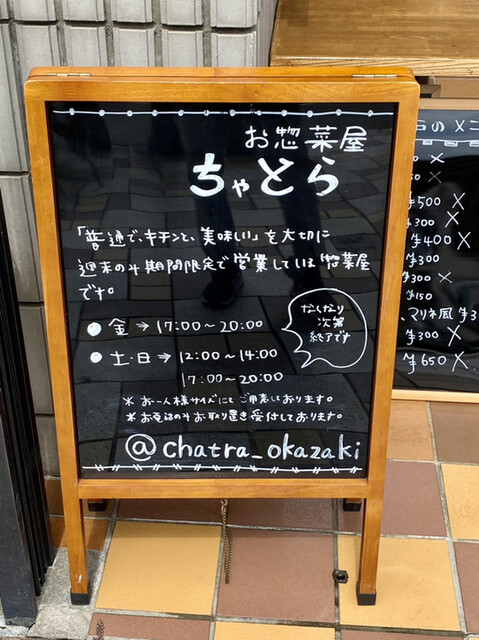 お惣菜屋
ちゃとら
「普通で、キチンと、美味しい」を大切に
週末のみ期間限定で営業している惣菜屋
です。
● 金→17:00～20:00
● 土・日→12:00～14:00
17:00～20:00
なくなり
次第
終了です
＊お一人様サイズにてご用意しております。
＊お電話のみお取り置き受付しております。
@chatra_okazaki
のメニ
¥500 ×
¥300 ×
¥400 ×
¥300
¥300 ×
¥150
、マリネ風 ¥3
¥300 ×
¥650 ×